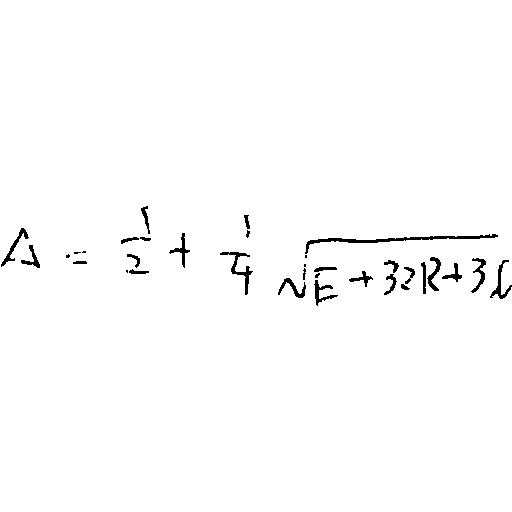 A = \frac{1}{2} + \frac{1}{4} \sqrt{E + 32R + 3}